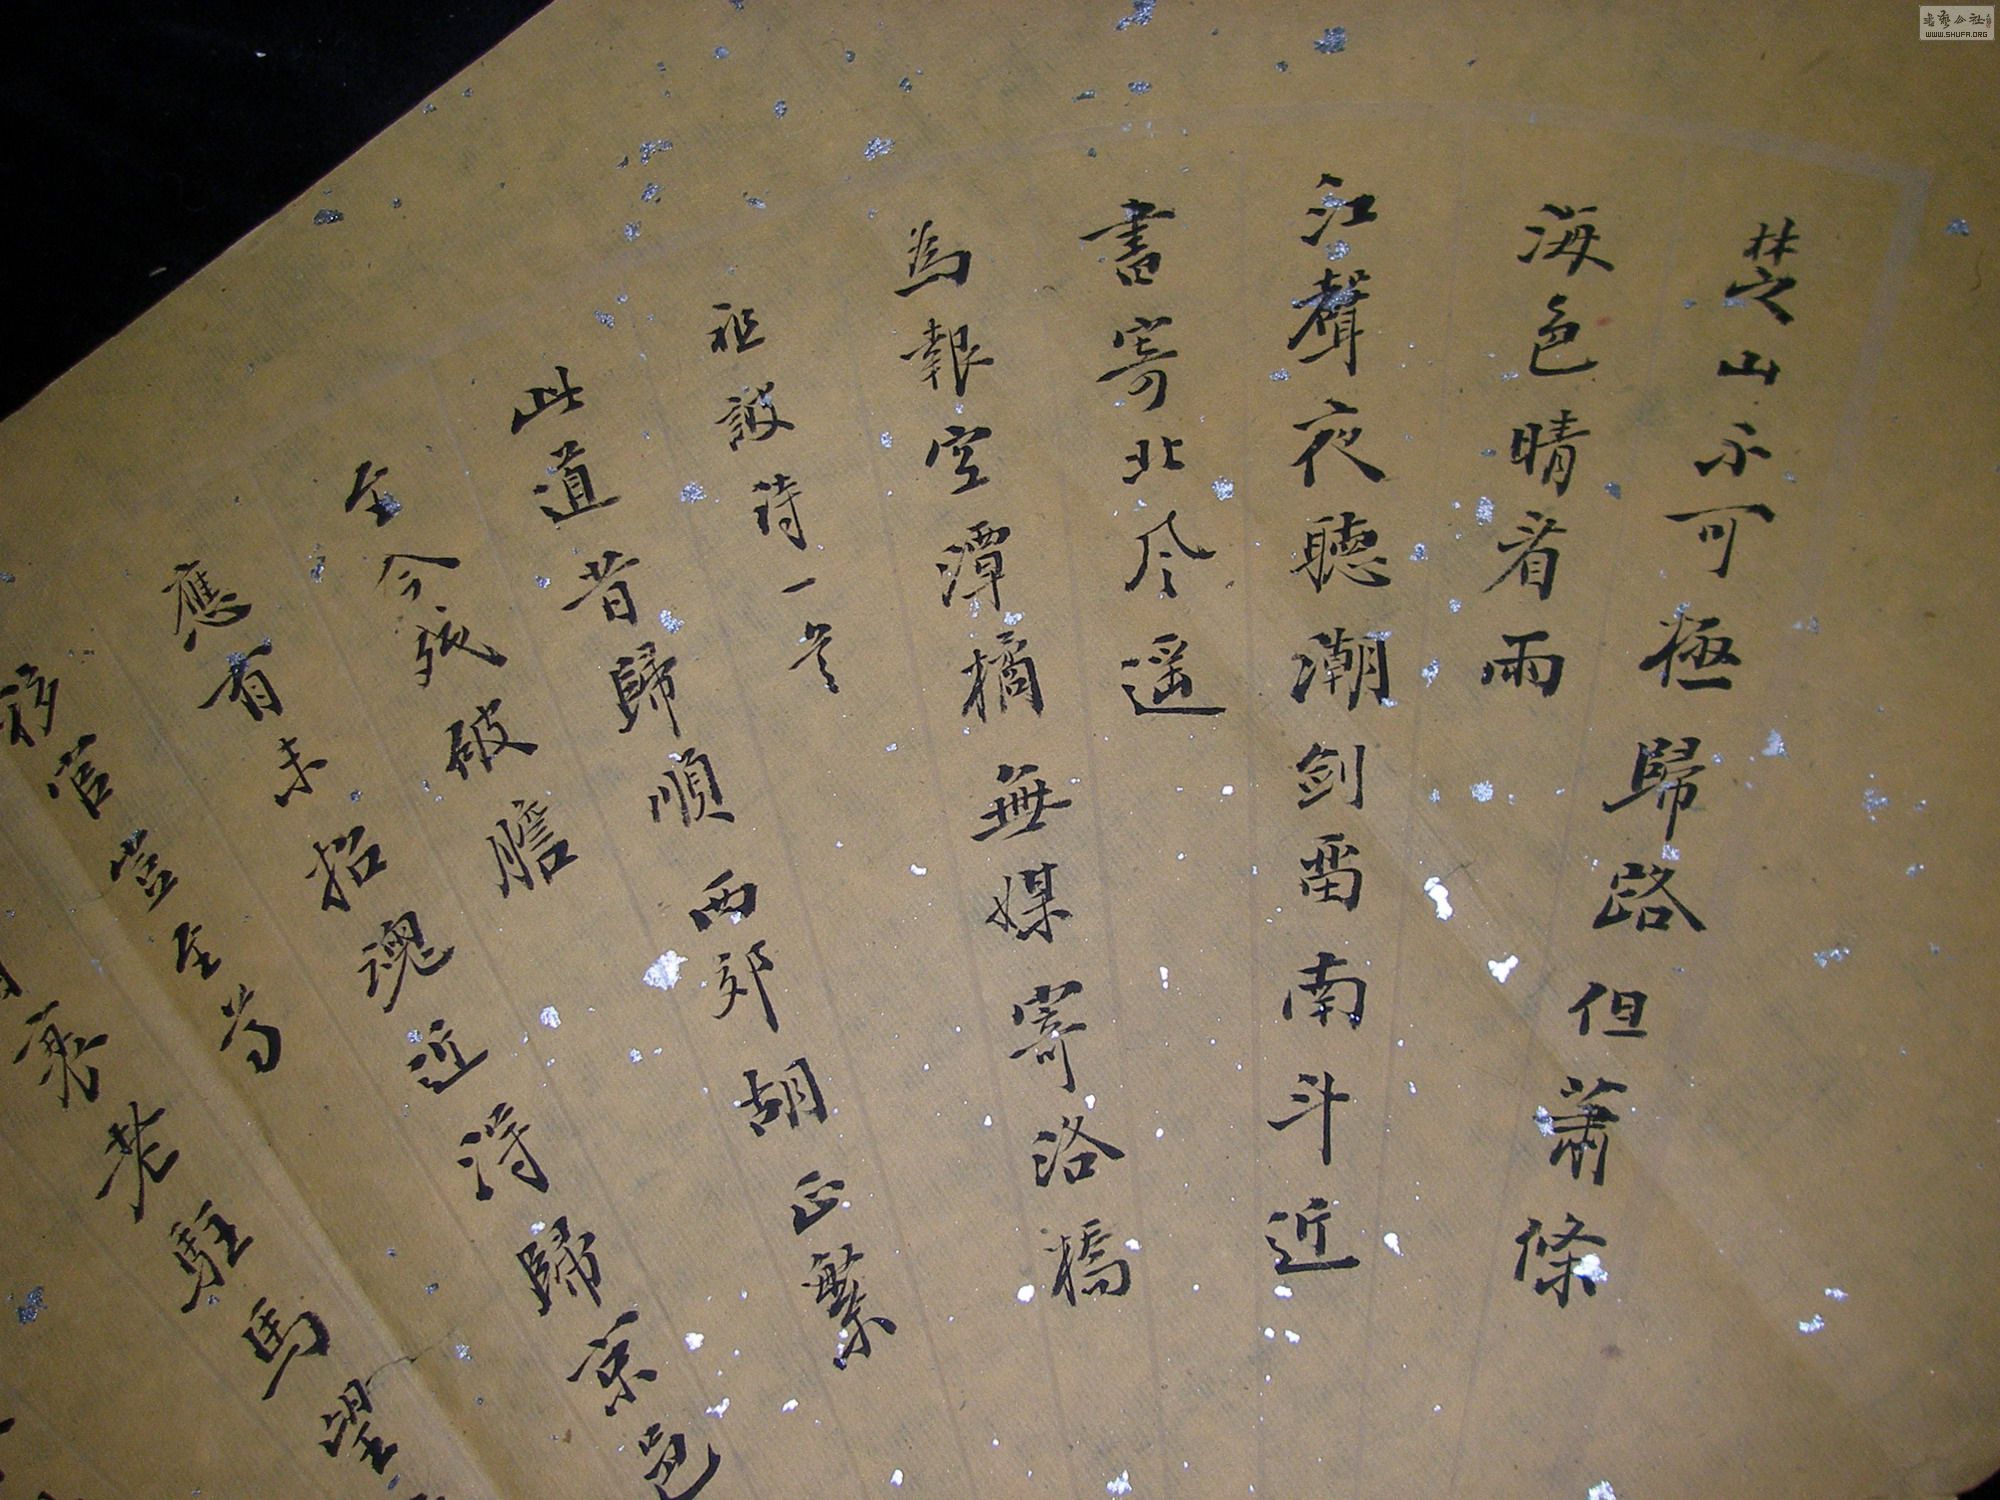 楚山不可極歸路但蕭條
海色晴看雨
江聲夜聽潮劍留南斗近
書寄北風遥
為報空潭橘無媒寄洛橋
祖詠詩一首
此道昔歸順西郊胡正繁
至今殘破膽
應有未招魂近侍歸京邑
移官豈至尊
衰老駐馬望
書藝公社
WWW.SHUFA.ORG